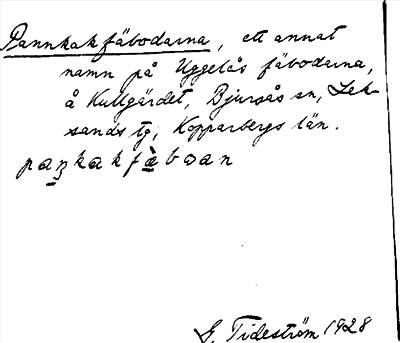 Pannkakfäbodarna, ett annat
namn på Uggelås fäbodarna,
å Kullgärdet, Bjursås sn, Lek-
sands tg, Kopparbergs län.
G. Tideström 1928